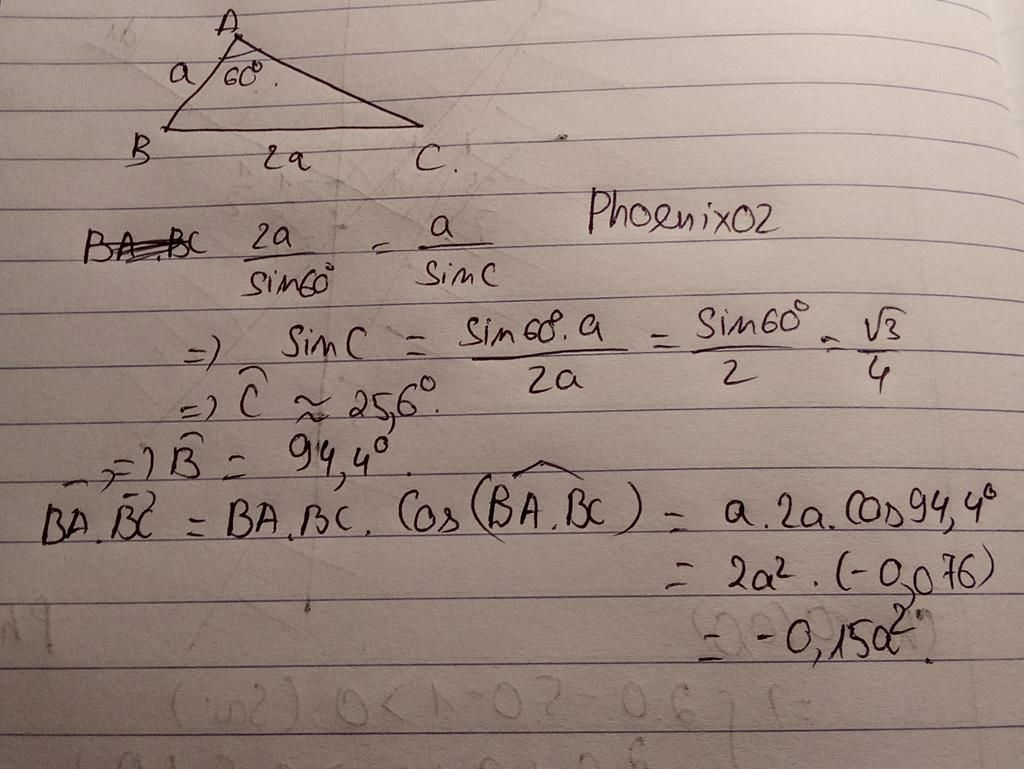 A
a 60°.
B 2a C.
Phoenix02
2a/sin60° = a/sinC
=) sinC = sin60°.a/2a = sin60°/2 = √3/4
=) Ĉ ≈ 25,6°.
=) B̂ = 94,4°.
BA.BC = BA.BC. Cos(BA.BC) = a.2a.Cos94,4°
= 2a². (-0,076)
= -0,15a².